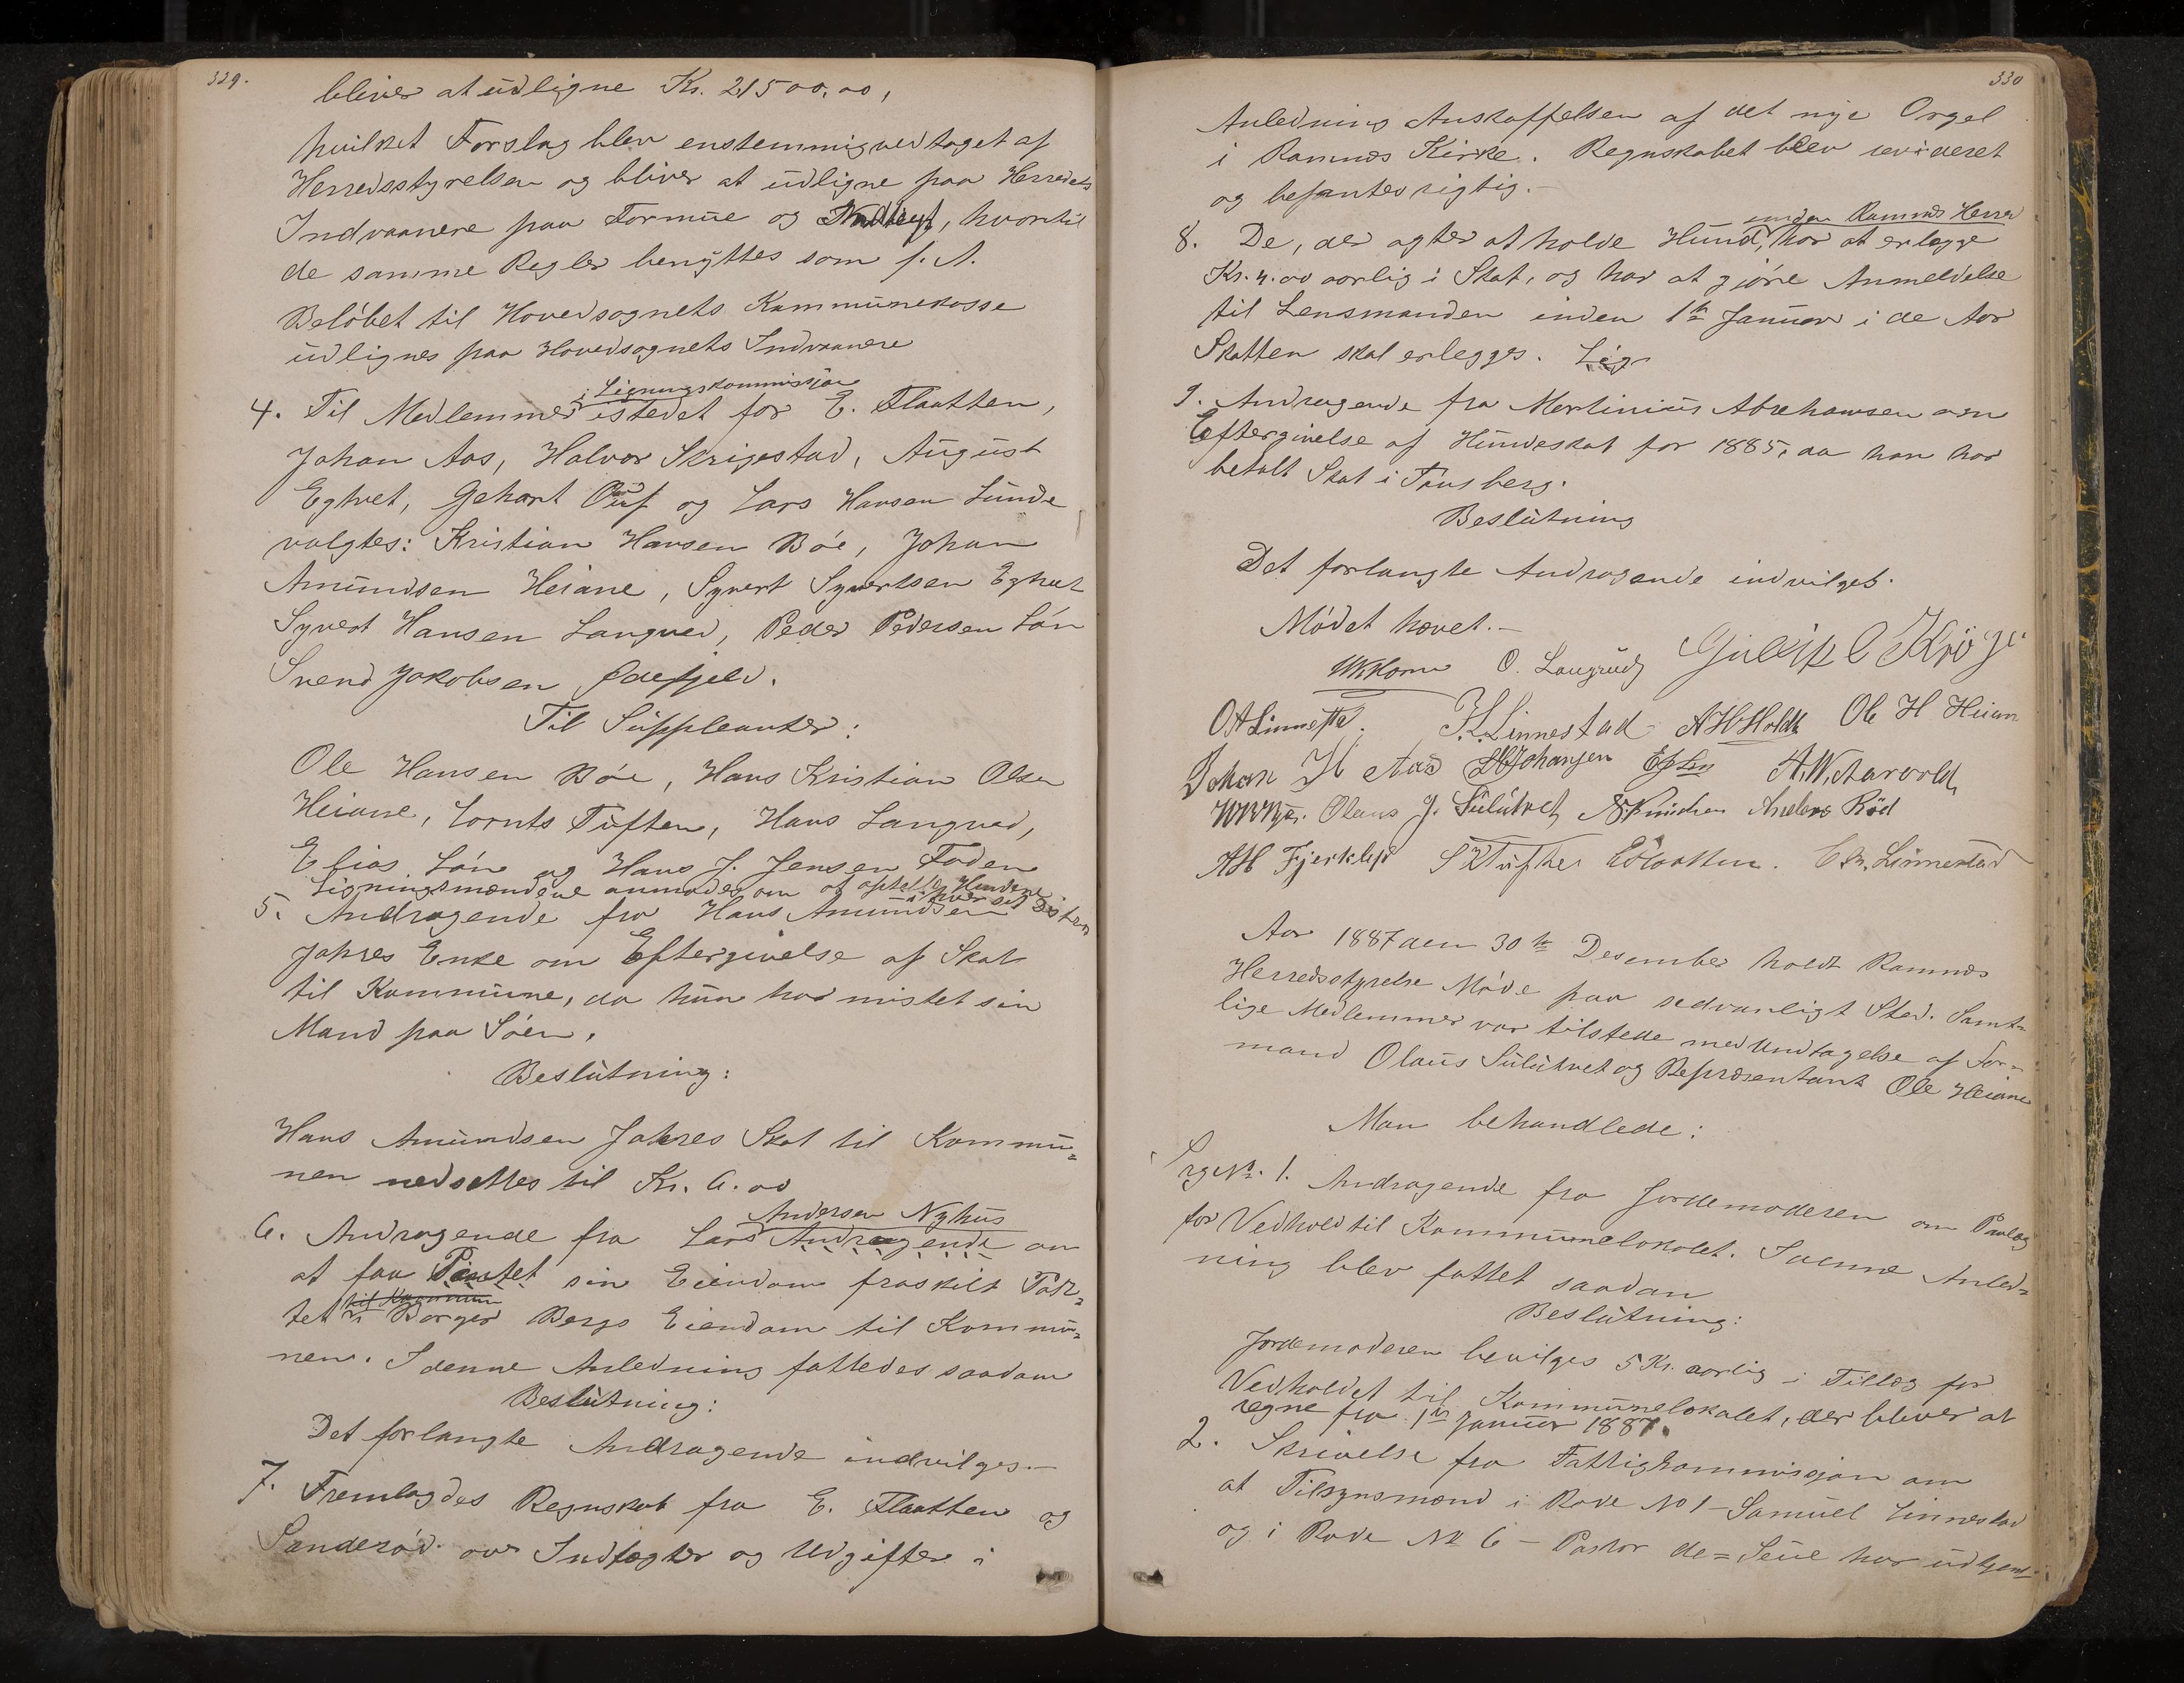 329.
bliver at udligne Kr. 21500,00,
hvilket Forslag blev enstemmig vedtaget af
Herredsstyrelsen og bliver at udligne paa Herredets
Indvaanere paa Formue og Indtægt, hvortil
de samme Regler benyttes som f. A.
Beløbet til Hovedsognets Kommunekasse
udlignes paa Hovedsognets Indvaanere
i Ligningskommissjon
4. Til Medlemmer istedet for E. Flaatten,
Johan Aas, Halvor Skrigestad, August
Eghvet, Gehart og Lars Hansen Lunde
valgtes: Kristian Hansen Bøe, Johan
Amundsen Heiane, Syvert Syvertsen Eghvet
Syvert Hansen Langved, Peder Pedersen Løn
Svend Jakobsen
Til Suppleanter:
Ole Hansen Bøe, Hans Kristian Olsen
Heiane, Lornts Tuften, Hans Langved,
Elias Løn og Hans J. Jensen Foden
Ligningsmændene anmodes om at optelle Hundene
i hver sit Distre
5. Andragende fra Hans Amundsen
Jahres Enke om Eftergivelse af Skat
til Kommune, da hun har mistet sin
Mand paa Søen.
Beslutning:
Hans Amundsen Jahres Skat til Kommu=
nen nedsettes til Kr. 6.00
Andersen Nyhus
6. Andragende fra Lars Andragende om
at faa Piastet sin Eiendom fraskilt Pak=
til Kommun
tet i Borger Bergs Eiendom til Kommu=
nen. I denne Anledning fattedes saadan
Beslutning:
Det forlangte Andragende indvilges.—
7. Fremlagdes Regnskab fra E. Flaatten og
Sanderød over Indtægter og Udgifter i
330
Anledning Anskaffelsen af det nye Orgel
i Ramnæs Kirke. Regnskabet blev revideret
og befantes rigtig.—
inden Ramnæs Herred
8. De, der agter at holde Hund, har at erlægge
Kr. 4.00 aarlig i Skat, og har at gjøre Anmeldelse
til Lensmanden inden 1te Januar i de Aar
Skatten skal erlegges. Lig
9. Andragende fra Martinius Abrahamsen om
Eftergivelse af Hundeskat for 1885, da han har
betalt Skat i Tønsberg.
Beslutning
Det forlangte Andragende indvilges.
Mødet hævet.—
O. Langved
OALinnestd. H.L.Linnestad AHHoldt Ole H Heian
Johan H Aas HJohansen A.N.Aarvold,
Olaus J. Sulutvet Anders Rød
AH Fjerkløp SKTufte EFlaatten. Chr. Linnestad
Aar 1887 den 30te Desember holdt Ramnæs
Herredsstyrelse Møde paa sedvanligt Sted. Samt=
lige Medlemmer var tilstede med Undtagelse af For=
mand Olaus Sulutvet og Representant Ole Heiane
Man behandlede:
Sag No. 1. Andragende fra Jordemoderen om Paalæg
for Vedhold til Kommunelokalet. I denne Anled=
ning blev fattet saadan
Beslutning:
Jordemoderen bevilges 5 Kr. aarlig i Tillæg for
Vedholdet til Kommunelokalet, der bliver at
regne fra 1te Januar 1887.
2. Skrivelse fra Fattigkommissjon om
at Tilsynsmænd i Rode No 1 – Samuel Linnestad
og i Rode No 6 – Pastor de=Seue har udtjent